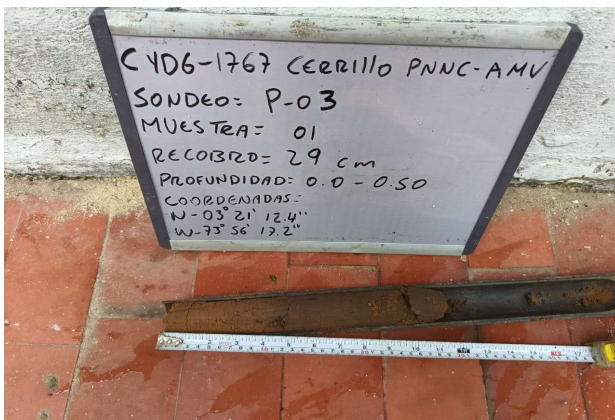 CYDG-1767 CERRILLO PNNC-AMV
SONDEO: P-03
MUESTRA= 01
RECOBRO= 29 cm
PROFUNDIDAD: 0.0 - 0.50
COORDENADAS:
N-03° 21' 12.4''
W-73° 56' 17.2''